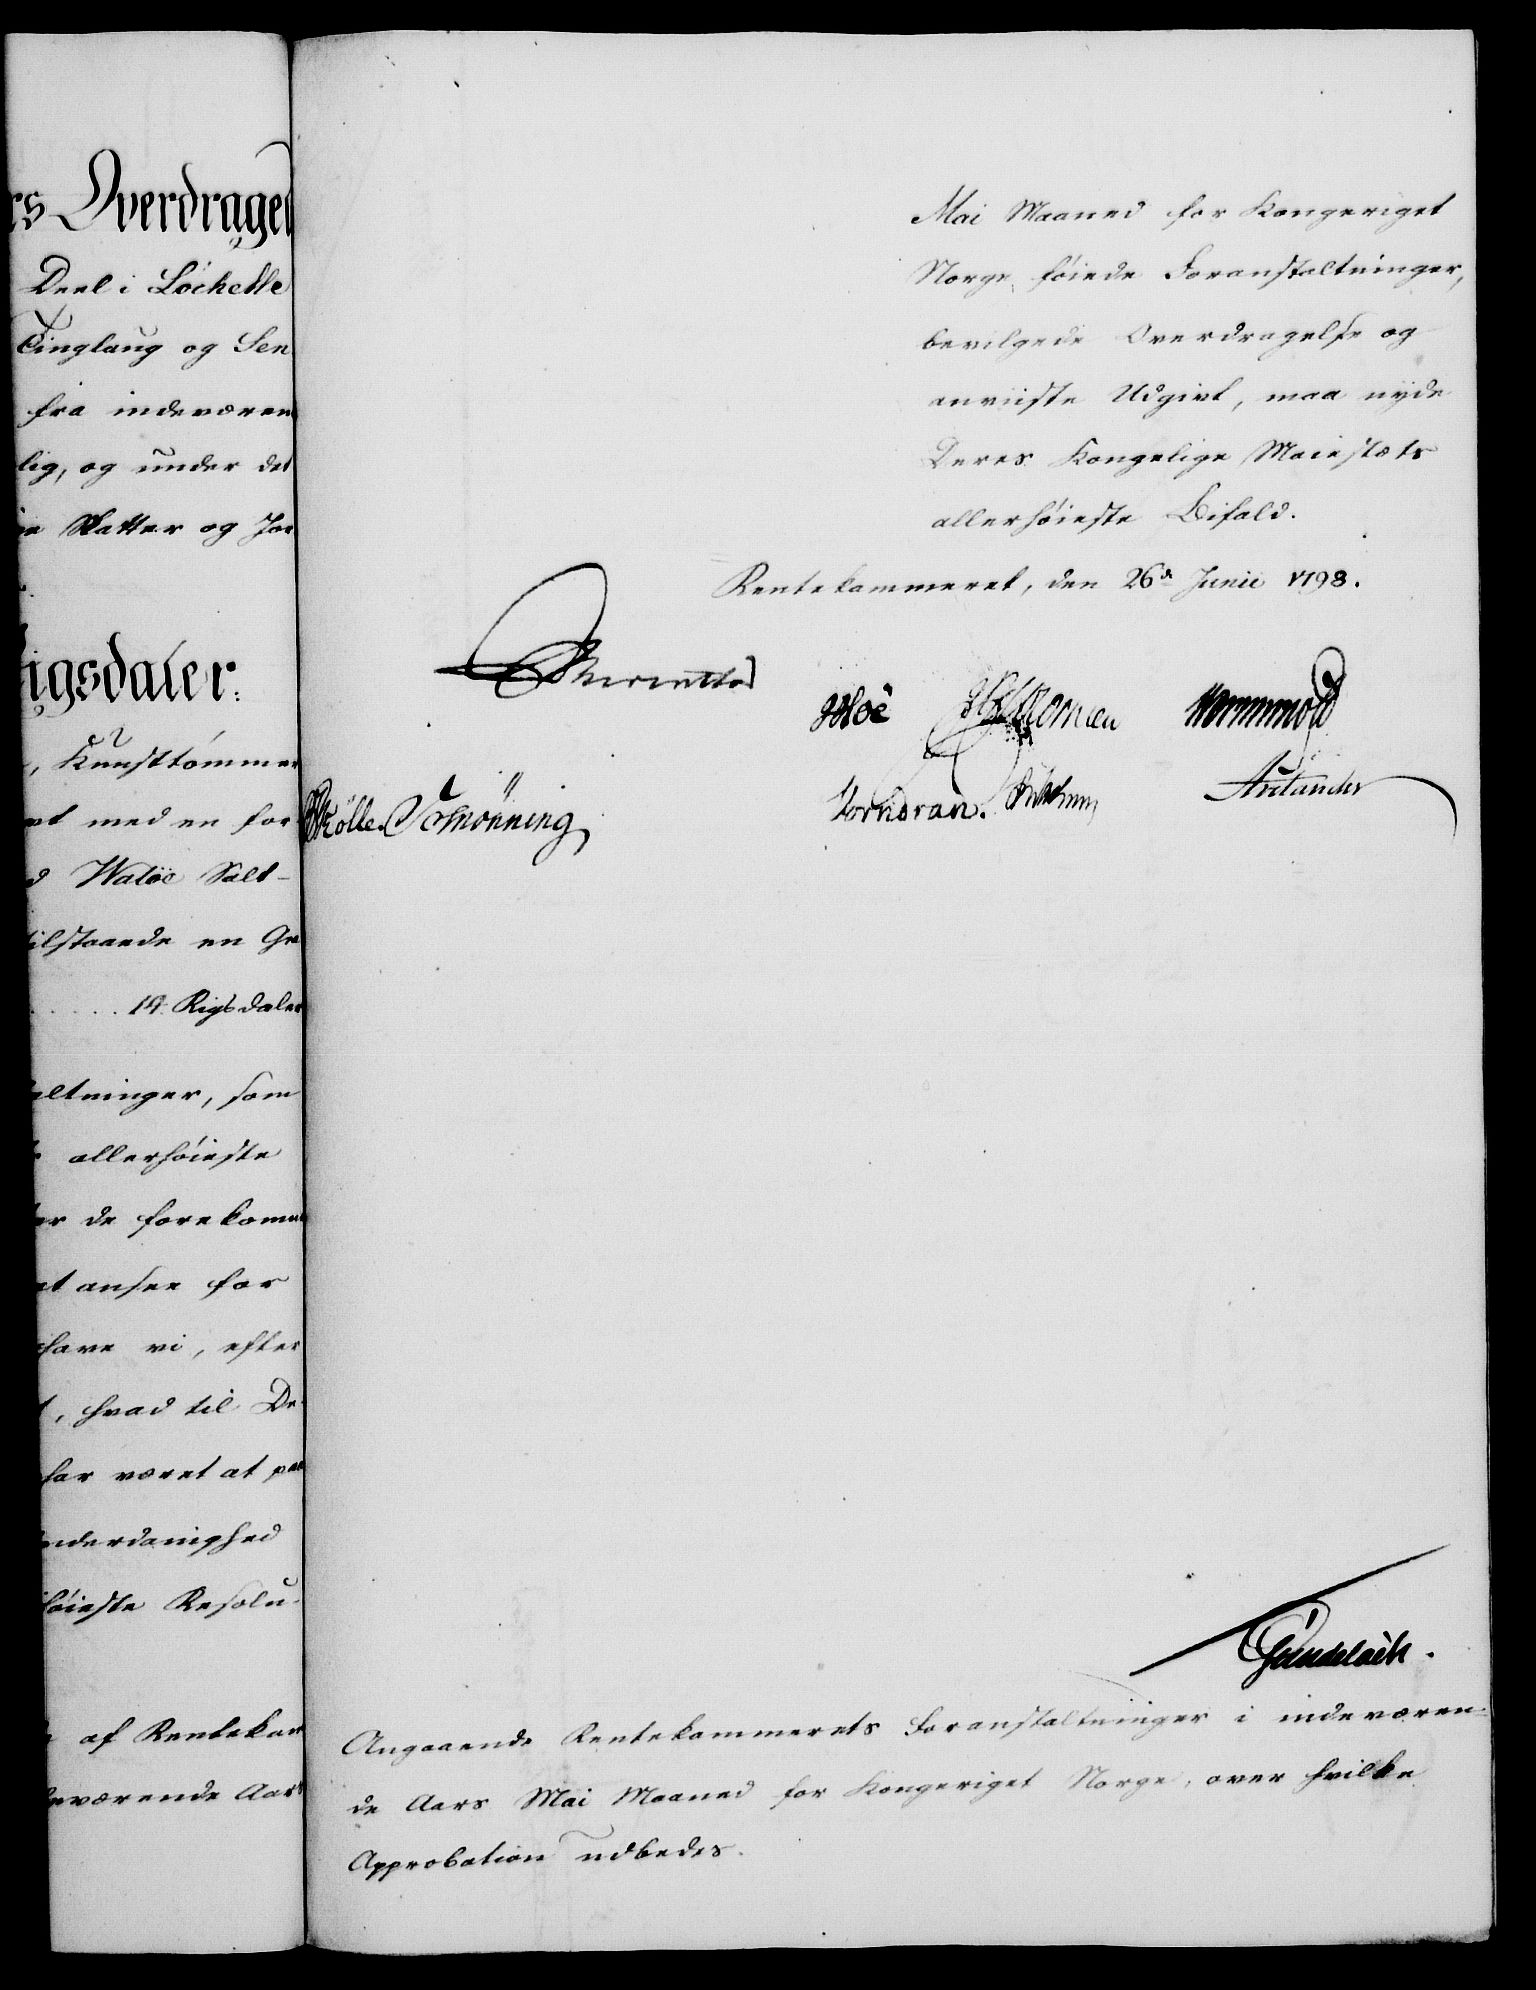 rs Overdragel
Deel i Löchelle
Tinglaug og Sen
fra indeværen
lig, og under det
Skatter og Jor
igsdaler.
, Kunsttömmer
et med en for
d Waløe Salt-
tilstaaende en Gr
14 Rigsdaler
altninger, som
allerhöieste
er de forekomm
at ansee for
have vi, efter
t, hvad til De-
har været at paa
underdanighed
höieste Resolu-
af Rentekam
deværende Aars
Mai Maaned for Kongeriget
Norge föiede Foranstaltninger,
bevilgede Overdragelse og
anviiste Udgivt, maa nyde
Deres Kongelige Maiestæts
allerhöieste Bifald.
Rentekammeret, den 26de Junii 1798.
Wormskiold
Schönning
Vorndran.
Gundelach.
Angaaende Rentekammerets Foranstaltninger i indeværen-
de Aars Mai Maaned for Kongeriget Norge, over hvilke
Approbation udbedes.